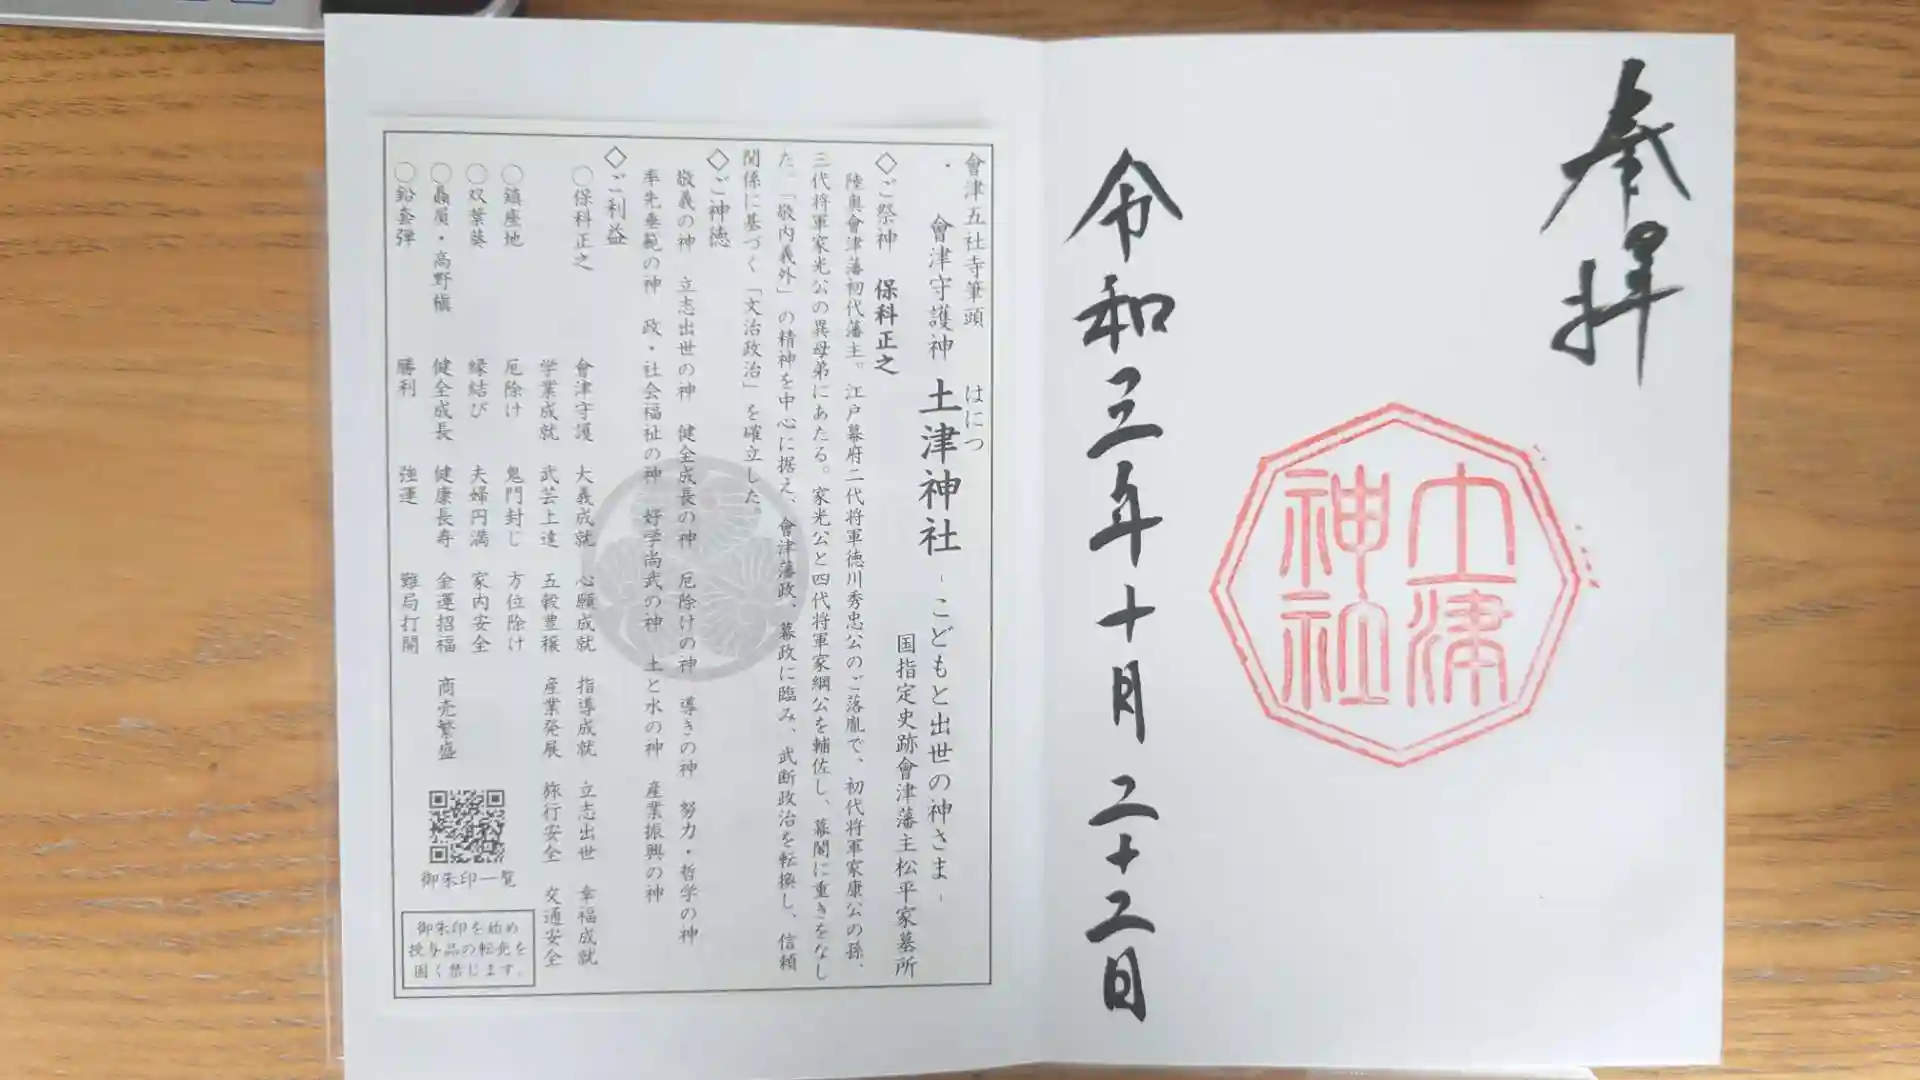 奉拝
土津
神社
令和三年十月二十二日
會津五社寺筆頭
會津守護神 土津神社 - こどもと出世の神さま -
はにつ
国指定史跡會津藩主松平家墓所
◇ご祭神 保科正之
陸奥會津藩初代藩主。江戸幕府二代将軍徳川秀忠公のご落胤で、初代将軍家康公の孫、
三代将軍家光公の異母弟にあたる。家光公と四代将軍家綱公を輔佐し、幕閣に重きをなし
た。「敬内義外」の精神を中心に据え、會津藩政、幕政に臨み、武断政治を転換し、信頼
関係に基づく「文治政治」を確立した。
◇ご神徳
敬義の神 立志出世の神 健全成長の神 厄除けの神 導きの神 努力・哲学の神
率先垂範の神 政・社会福祉の神 好学尚武の神 土と水の神 産業振興の神
◇ご利益
○保科正之 會津守護 大義成就 心願成就 指導成就 立志出世 幸福成就
学業成就 武芸上達 五穀豊穣 産業発展 旅行安全 交通安全
○鎮座地 厄除け 鬼門封じ 方位除け
○双葉葵 縁結び 夫婦円満 家内安全
○贔屓・高野槇 健全成長 健康長寿 金運招福 商売繁盛
○鉛套弾 勝利 強運 難局打開
御朱印一覧
御朱印を始め
授与品の転売を
固く禁じます。